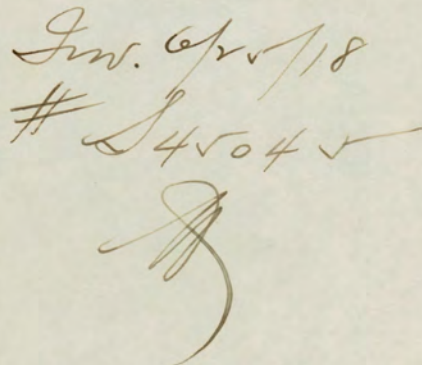 Inv. 6/25/18
# S45045